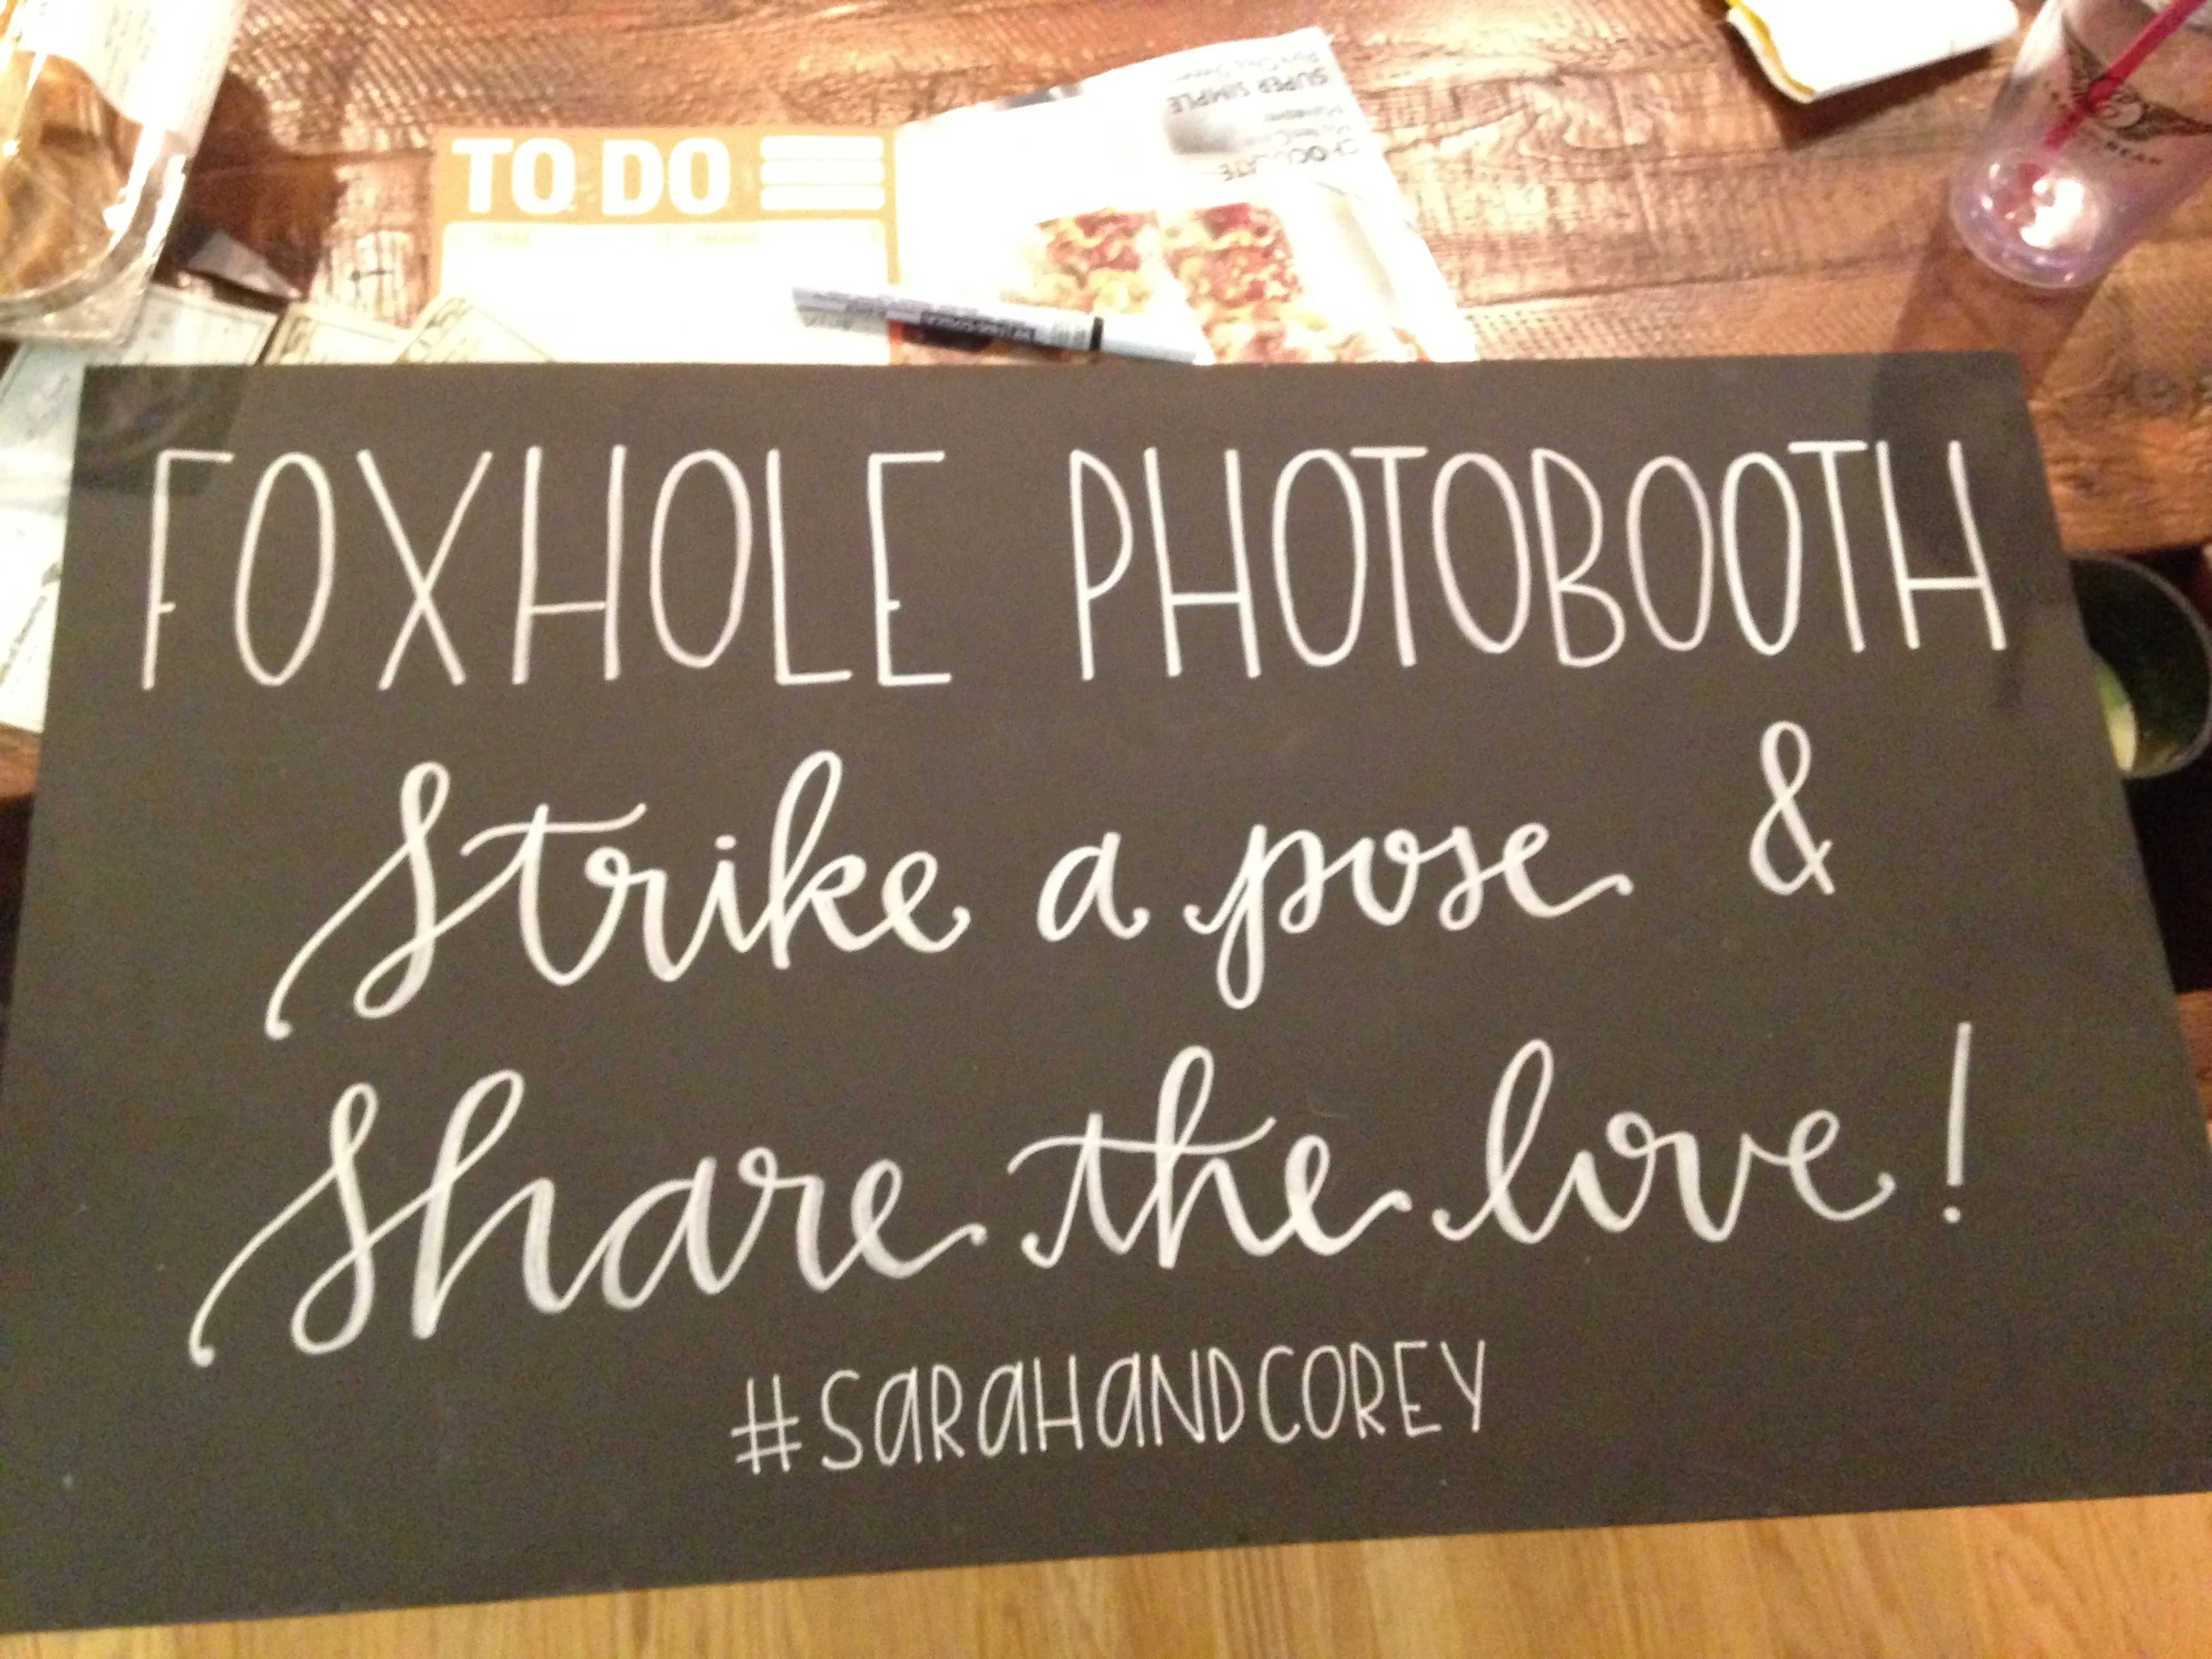 TO DO
SUPER SIMPLE
CHOCOLATE
FOXHOLE PHOTOBOOTH
Strike a pose &
Share the love!
#SARAHANDCOREY